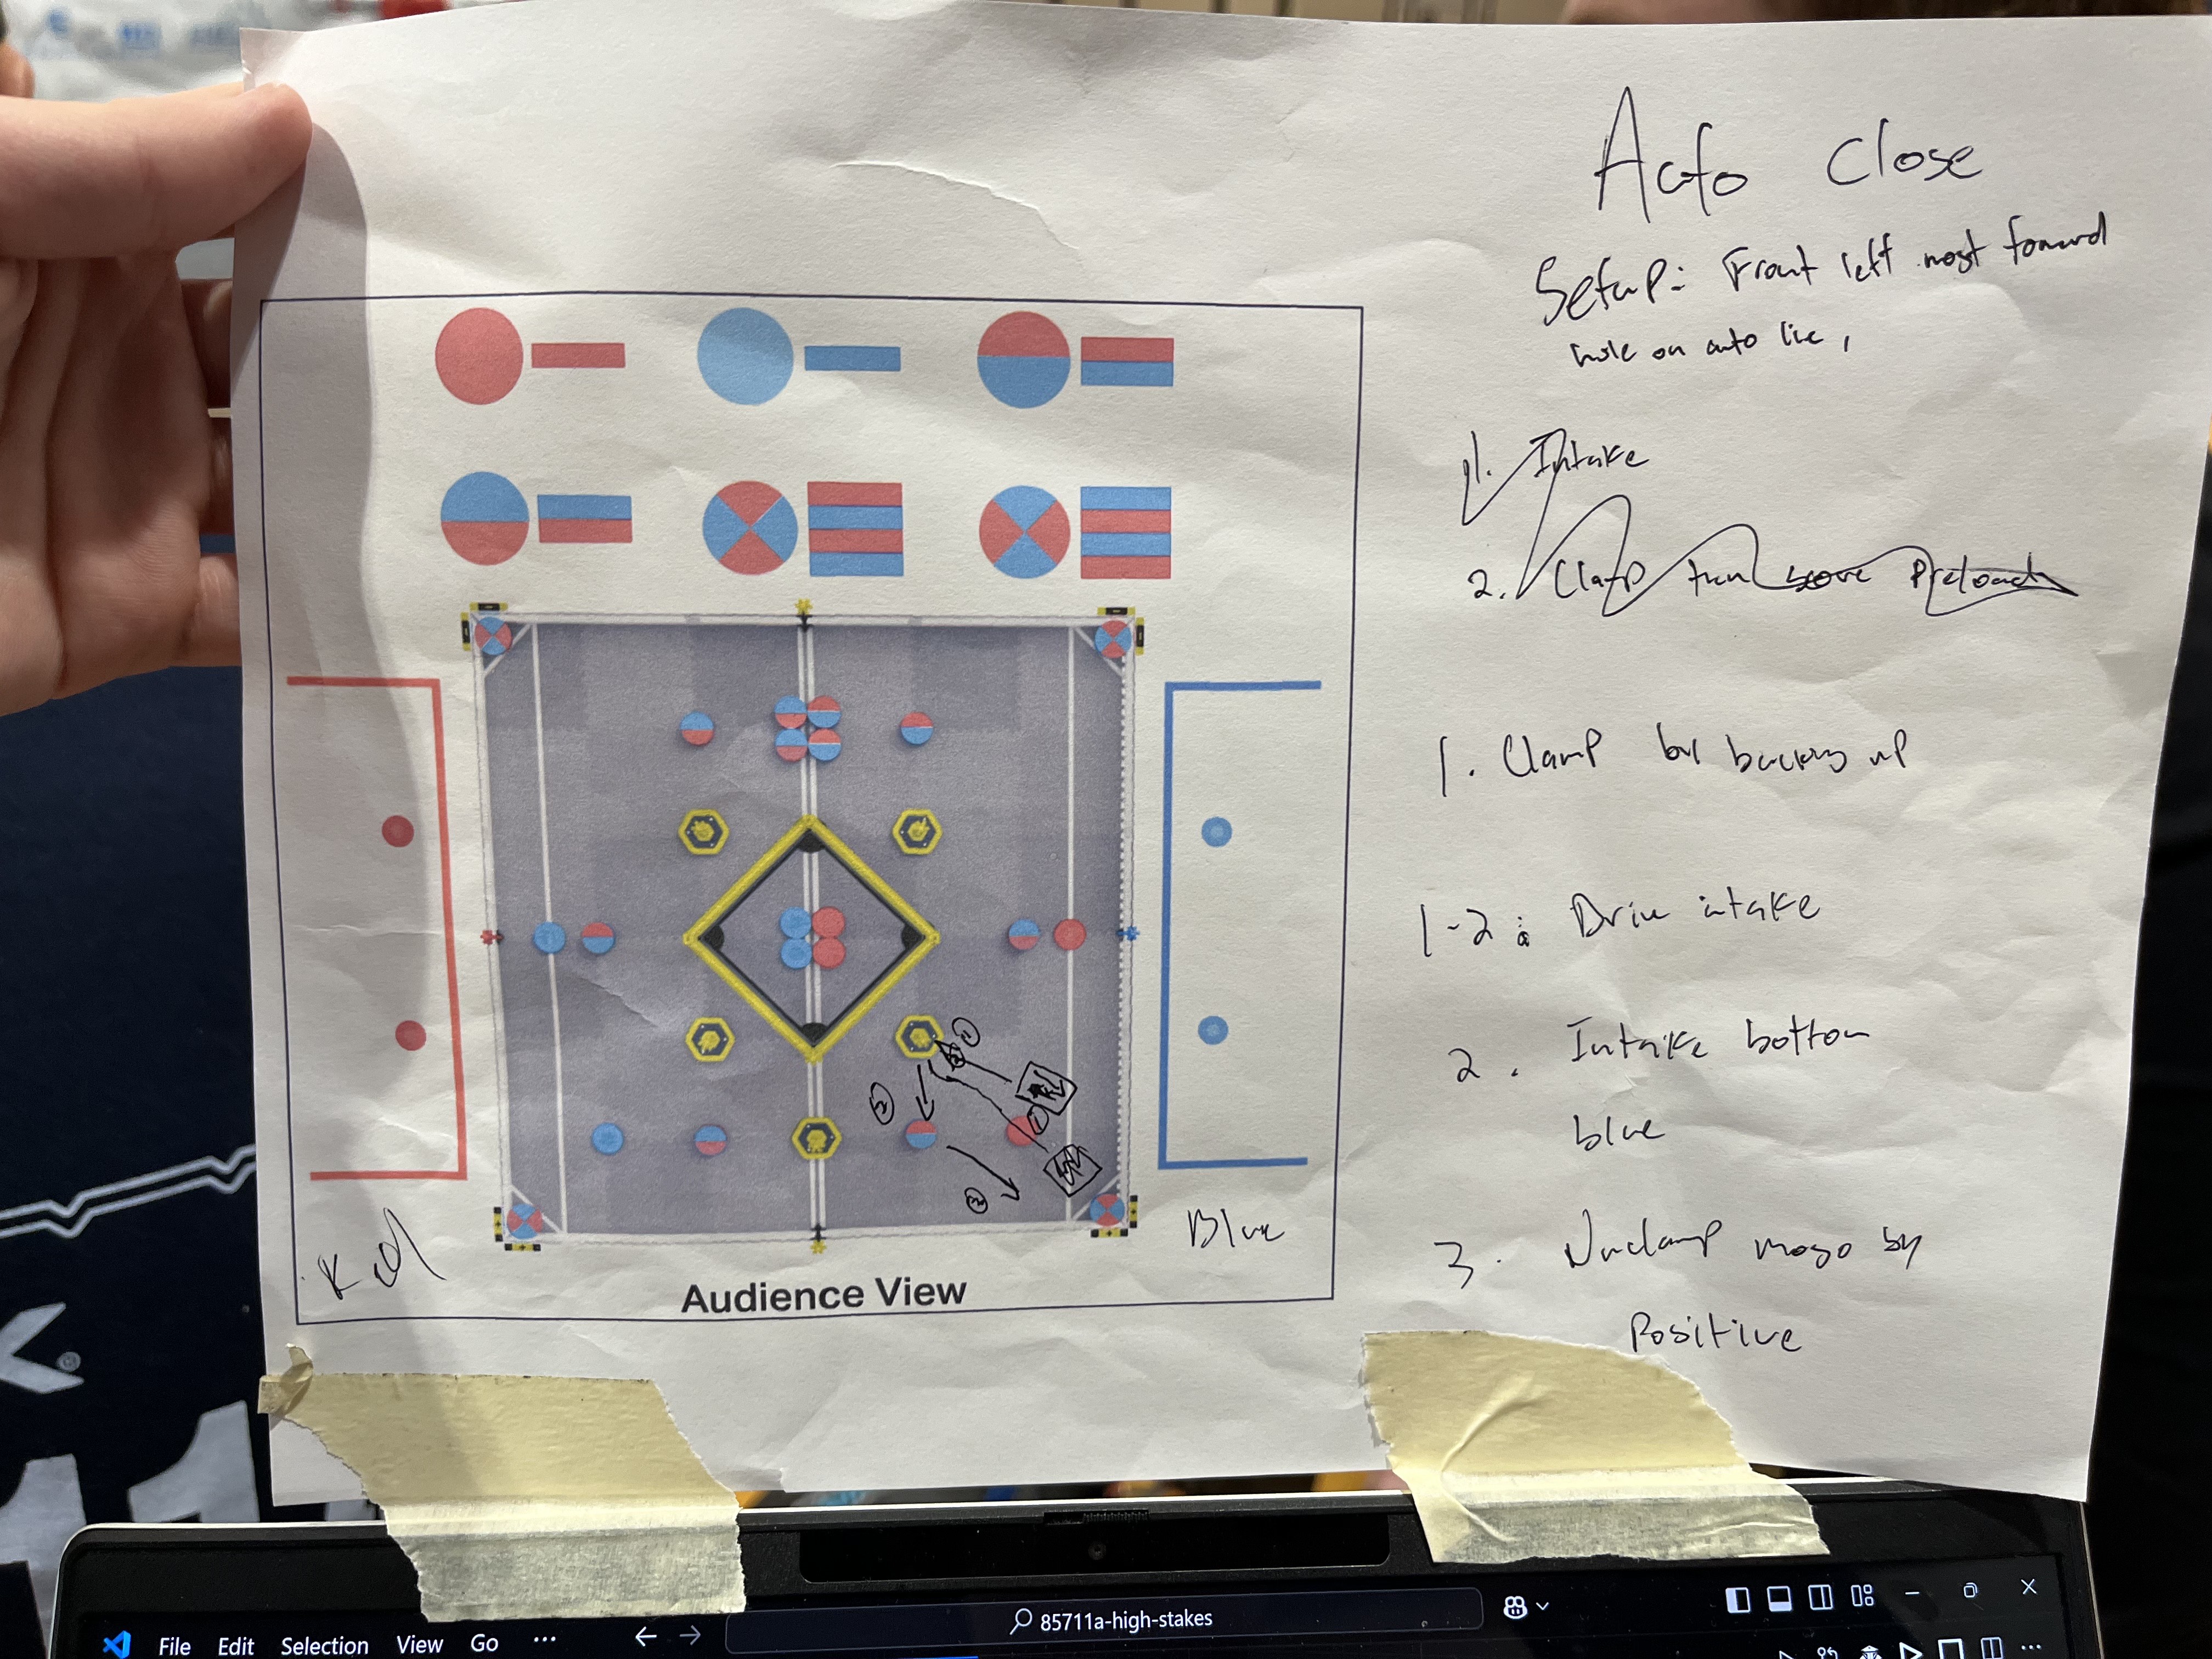 Auto Close
Setup: Front left most forward
hole on auto line,
1. Intake
2. Clamp turn score Preload
1. Clamp by backing up
1-2: Drive intake
2. Intake bottom
blue
3. Unclamp mogo by
Positive
1
2
1
3
Red
Blue
Audience View
11
File Edit Selection View Go ...
85711a-high-stakes